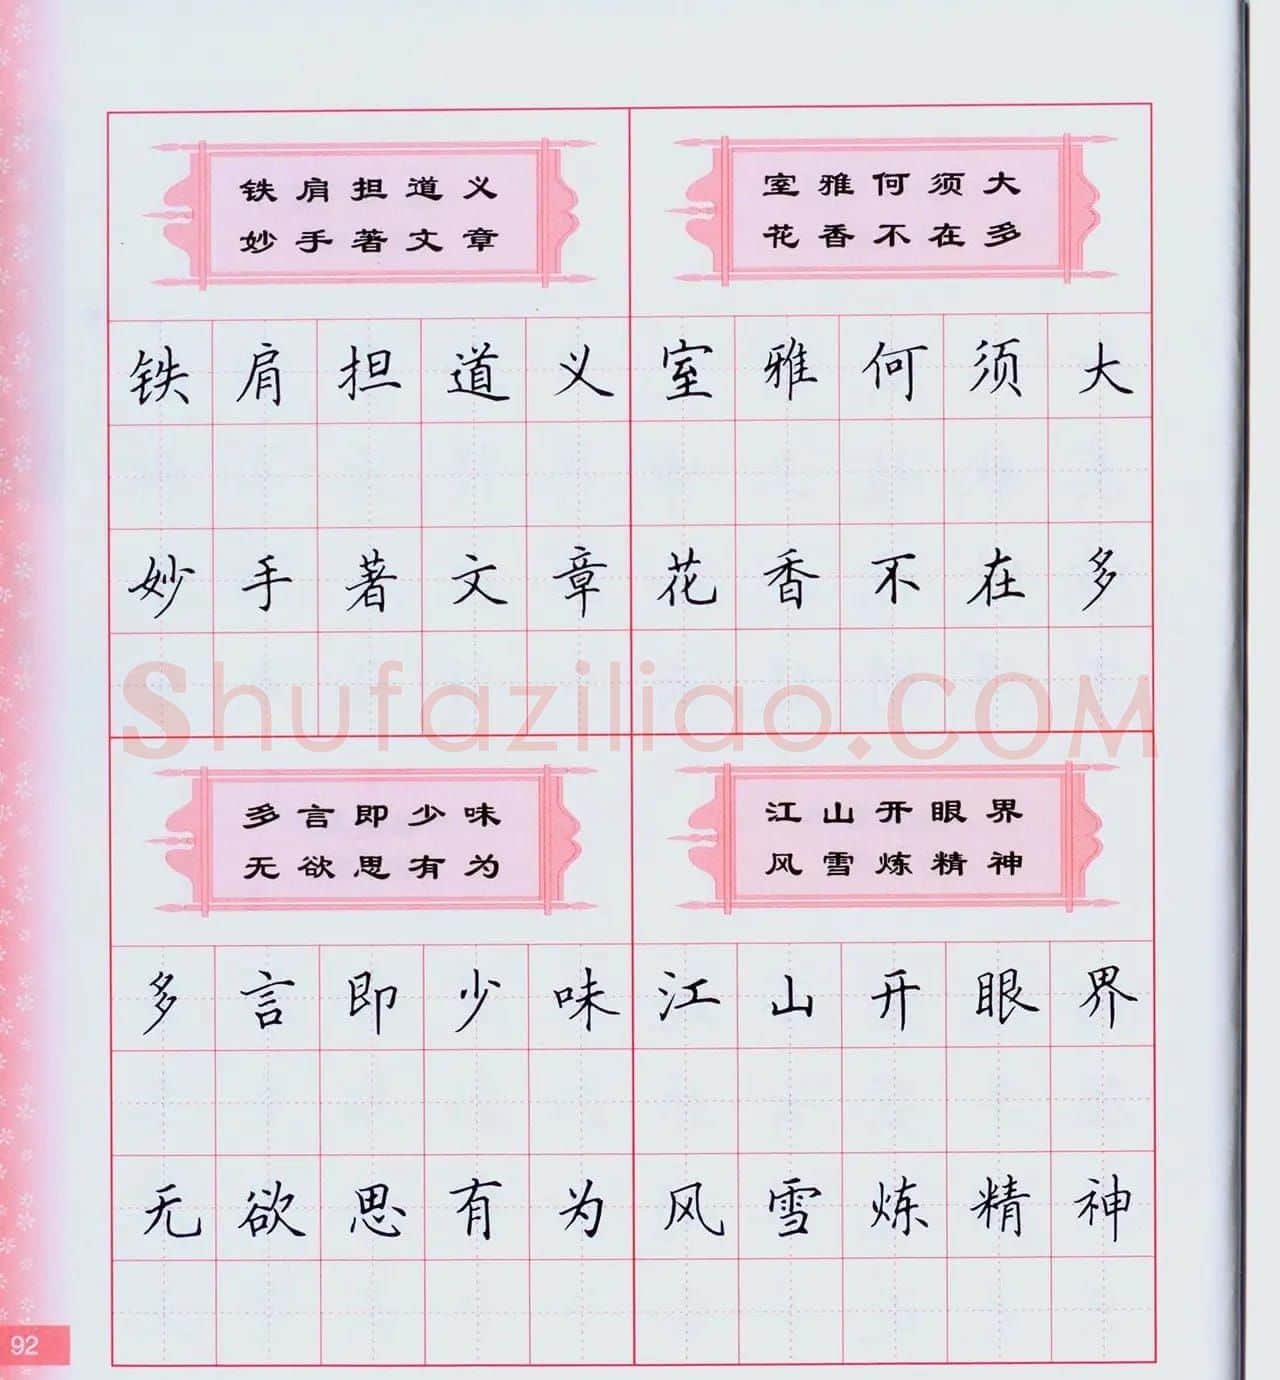 铁肩担道义
妙手著文章
铁肩担道义
妙手著文章
室雅何须大
花香不在多
室雅何须大
花香不在多
多言即少味
无欲思有为
多言即少味
无欲思有为
江山开眼界
风雪炼精神
江山开眼界
风雪炼精神
Shufaziliao.COM
92